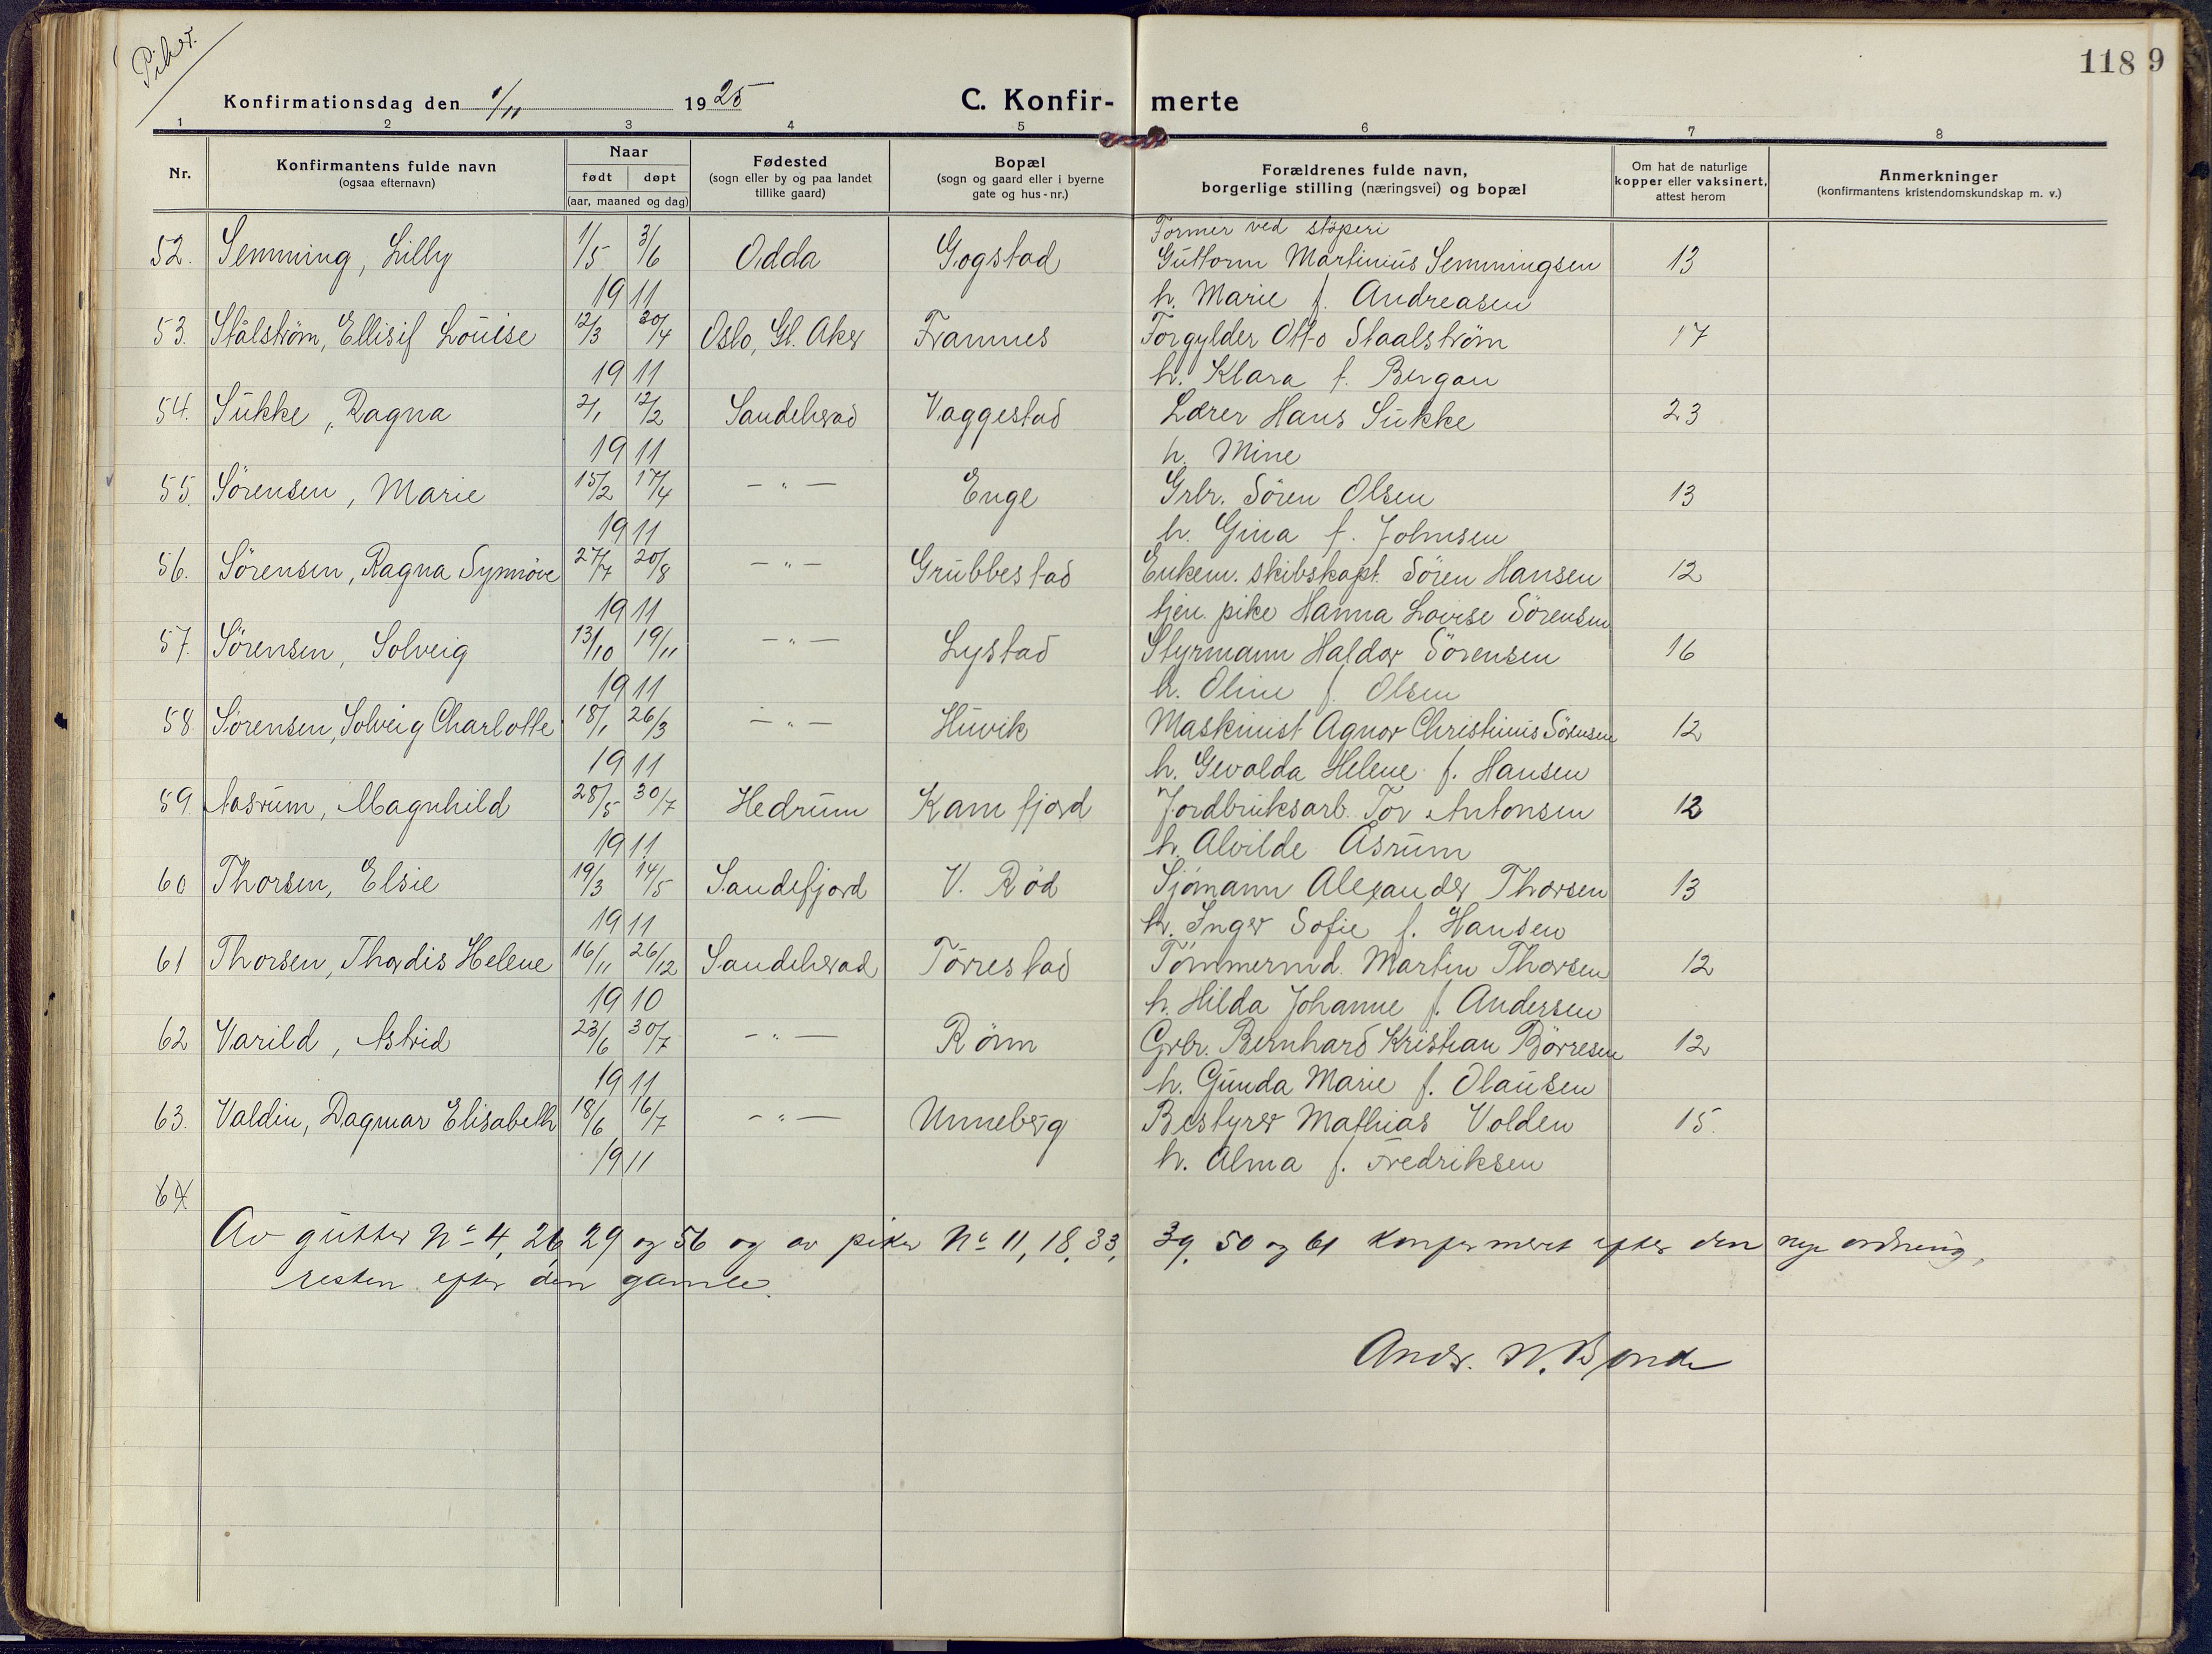 Piker.
118 9
Konfirmationsdag den 1/11 1925 C. Konfir- merte
1 2 3 4 5 6 7 8
Nr. Konfirmantens fulde navn (ogsaa efternavn) Naar født døpt (aar, maaned og dag) Fødested (sogn eller by og paa landet tillike gaard) Bopæl (sogn og gaard eller i byerne gate og hus-nr.) Forældrenes fulde navn, borgerlige stilling (næringsvei) og bopæl Om hat de naturlige kopper eller vaksinert, attest herom Anmerkninger (konfirmantens kristendomskundskap m. v.)
Former ved støperi
52. Semming, Lilly 1/5 3/6 Odda Gogstad Guttorm Martinius Semmingsen 13
1911 h. Marie f. Andreasen
53. Stålstrøm, Ellisif Louise 12/3 30/4 Oslo, Gl. Aker Framnes Forgylder Otto Staalstrøm 17
1911 h. Klara f. Bergan
54. Sukke, Ragna 2/1 12/2 Sandeherad Vaggestad Lærer Hans Sukke 23
1911 h. Mine
55. Sørensen, Marie 15/2 17/4 — " — Enge Grbr. Søren Olsen 13
1911 h. Gina f. Johnsen
56. Sørensen, Ragna Synnøve 27/7 20/8 — " — Grubbestad Enkem. skibskapt. Søren Hansen 12
1911 tjen. pike Hanna Lovise Sørensen
57. Sørensen, Solveig 13/10 19/11 — " — Lystad Styrmann Haldor Sørensen 16
1911 h. Oline f. Olsen
58. Sørensen, Solveig Charlotte 18/1 26/3 — " — Huvik Maskinist Agnor Christinius Sørensen 12
1911 h. Gevolda Helene f. Hansen
59. Aasrum, Magnhild 28/5 30/7 Hedrum Kamfjord Jordbruksarb. Tor Antonsen 12
1911 h. Alvilde Åsrum
60 Thorsen, Elsie 19/3 14/5 Sandefjord V. Rød Sjømann Alexander Thorsen 13
1911 h. Inger Sofie f. Hansen
61 Thorsen, Thordis Helene 16/11 26/12 Sandeherad Tørrestad Tømmermd. Martin Thorsen 12
1910 h. Hilda Johanne f. Andersen
62 Varild, Astrid 23/6 30/7 — " — Rønn Grbr. Bernhard Kristian Børresen 12
1911 h. Gunda Marie f. Olausen
63. Valdin, Dagmar Elisabeth 18/6 16/7 — " — Unneberg Bestyrer Mathias Volden 15.
1911 h. Alma f. Fredriksen
64
Av gutter No 4, 26, 29 og 56 og av piker No 11, 18, 33, 39, 50 og 61 konfirmeret efter den nye ordning,
resten efter den gamle.
Andr. N. Bonde